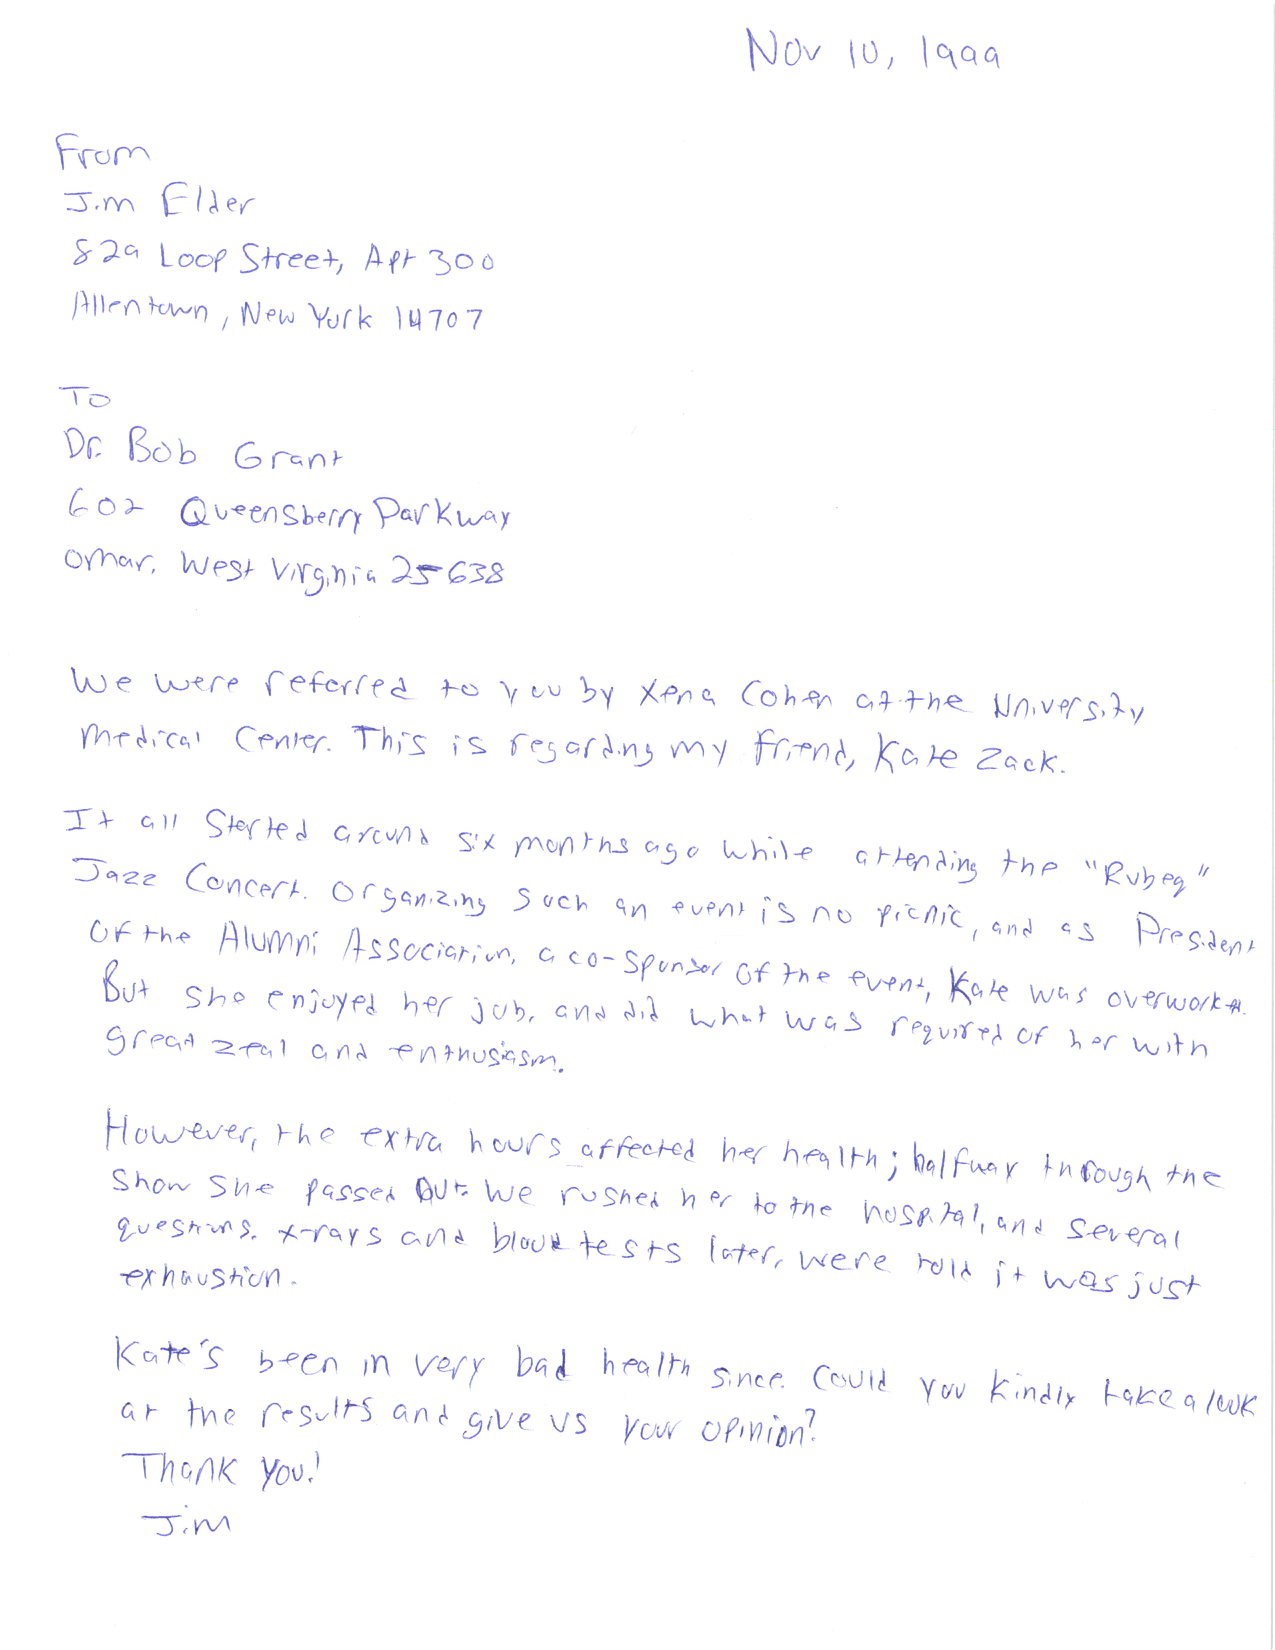 Nov 10, 1999
From
Jim Elder
829 Loop Street, Apt 300
Allentown, New York 14707
To
Dr. Bob Grant
602 Queensberry Parkway
Omar, West Virginia 25638
We were referred to you by Xena Cohen at the University
Medical Center. This is regarding my friend, Kate Zack.
It all started around six months ago while attending the "Rubeq"
Jazz Concert. Organizing such an event is no picnic, and as President
of the Alumni Association, a co-sponsor of the event, Kate was overworked.
But she enjoyed her job, and did what was required of her with
great zeal and enthusiasm.
However, the extra hours affected her health; halfway through the
show she passed out. We rushed her to the hospital, and several
questions, x-rays and blood tests later, were told it was just
exhaustion.
Kate's been in very bad health since. Could you kindly take a look
at the results and give us your opinion?
Thank you!
Jim